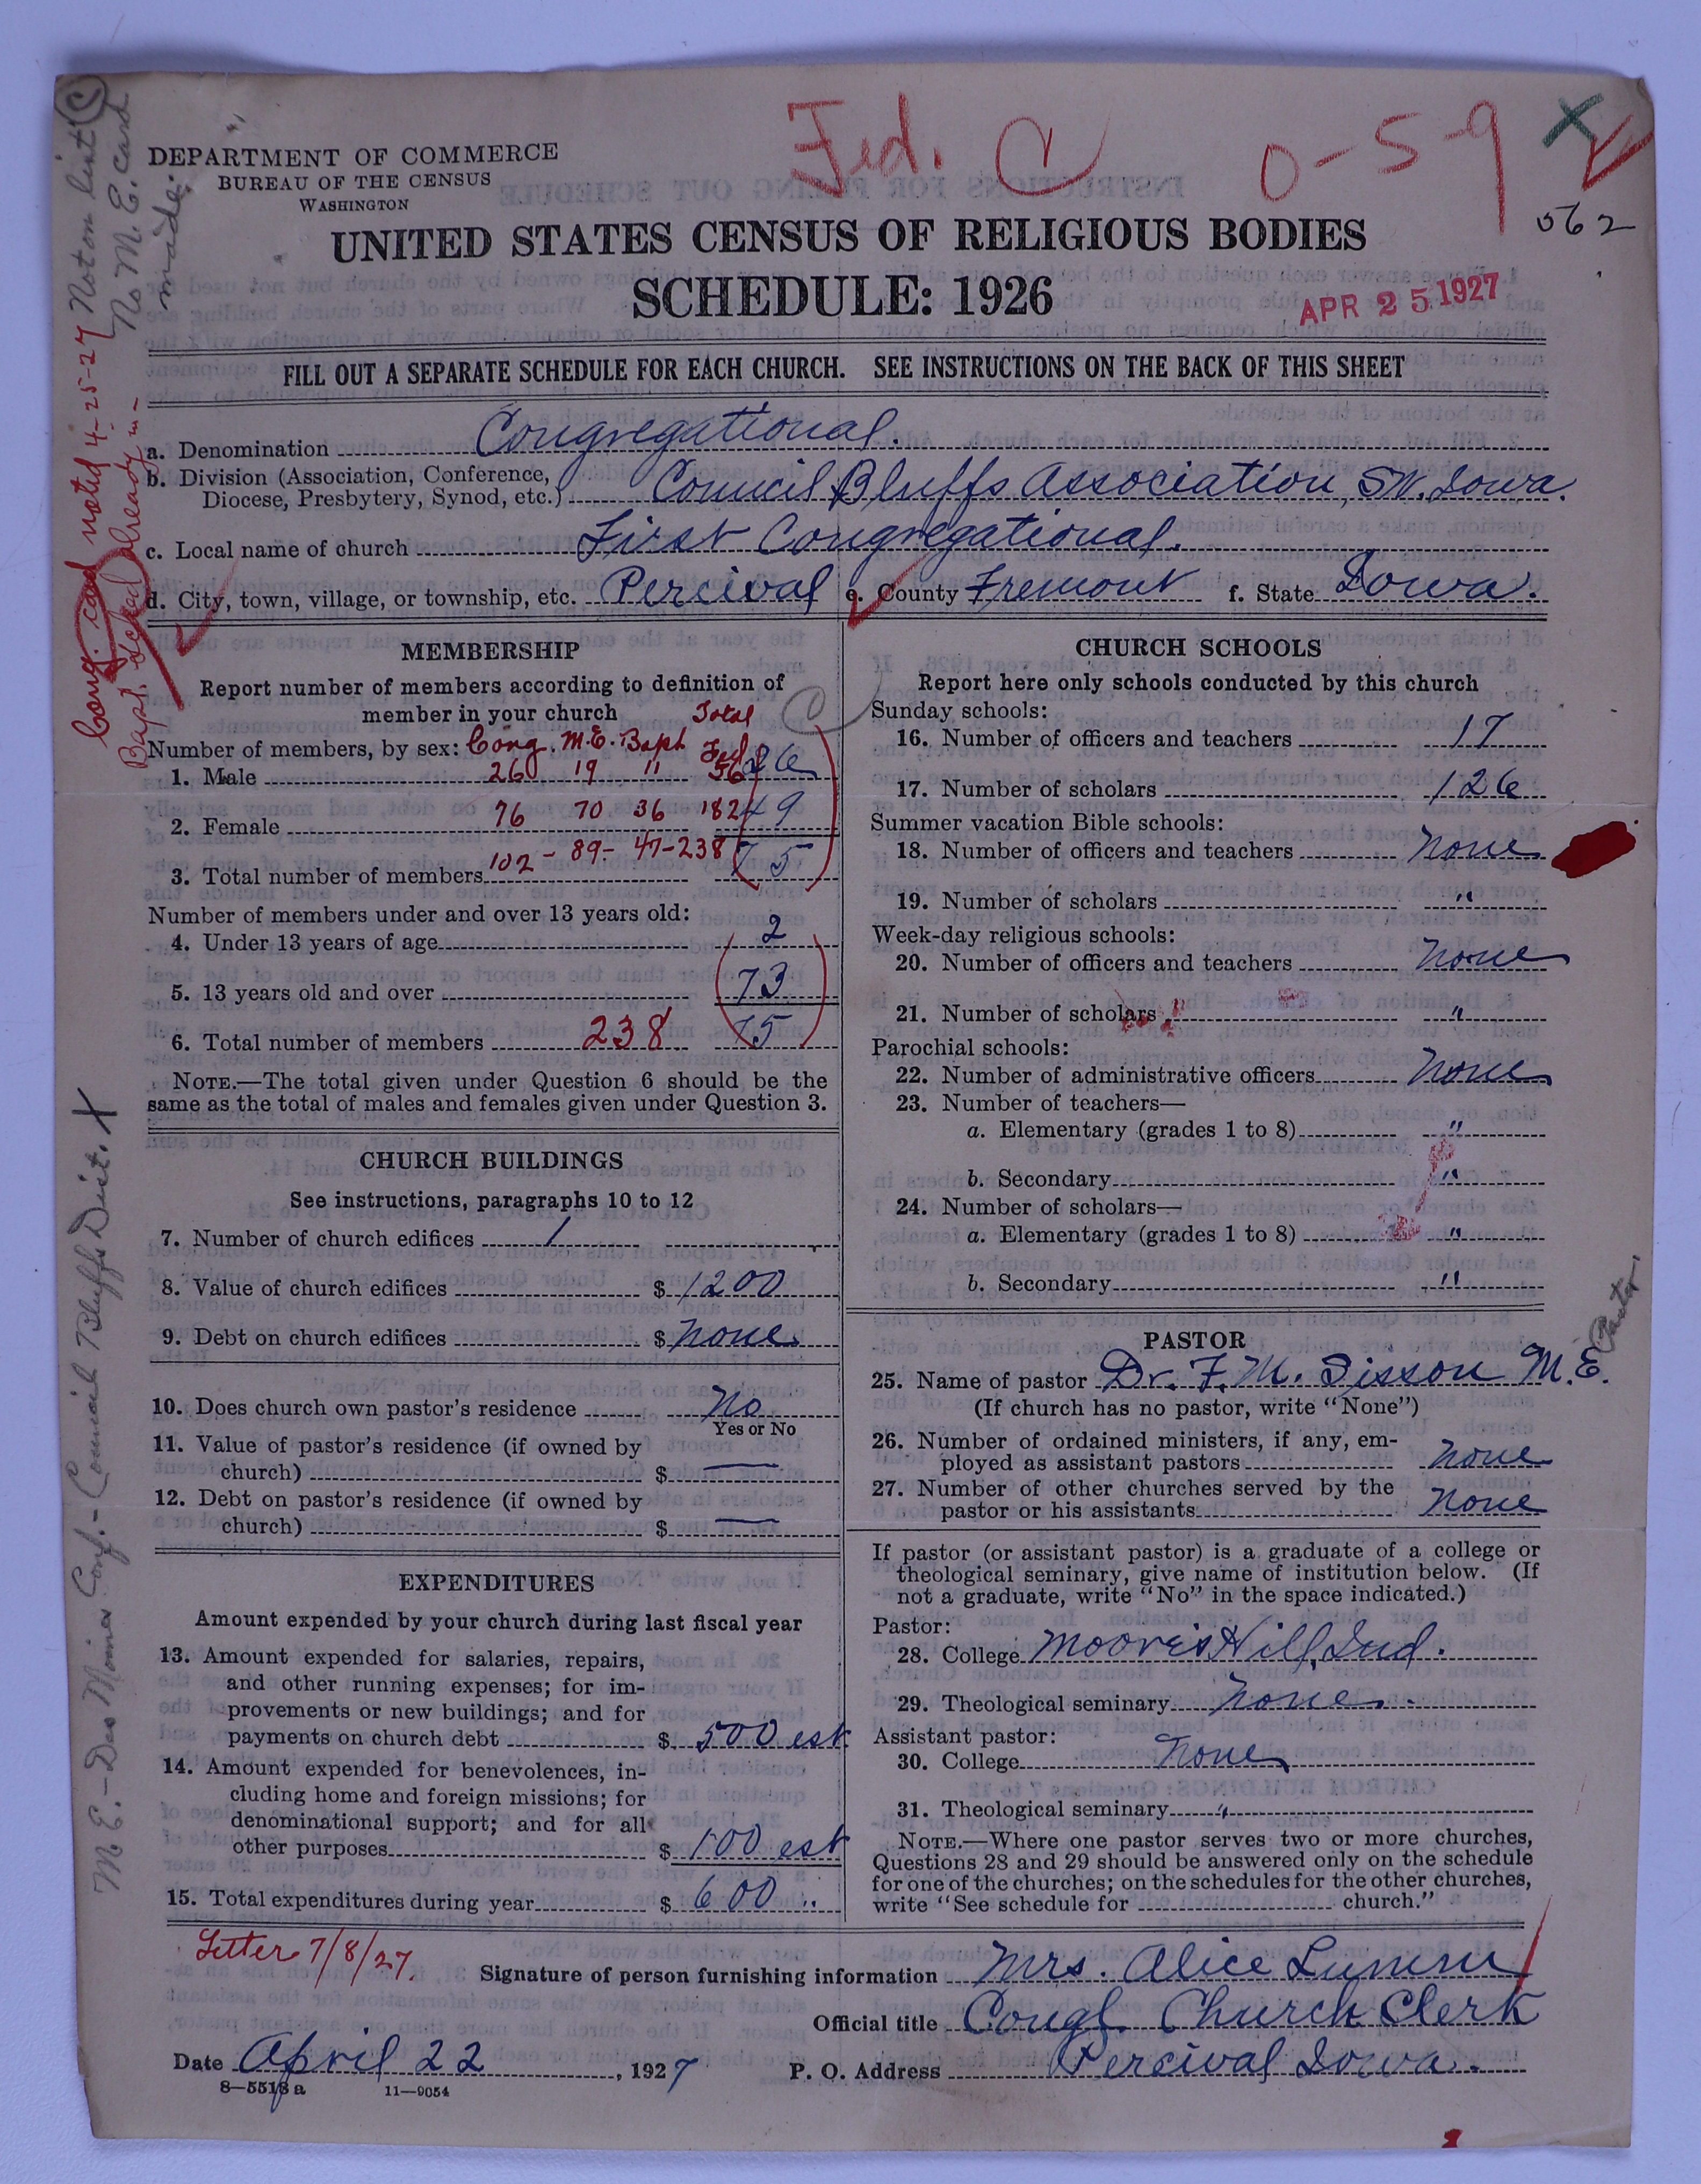 Fed. C 0-59 X
DEPARTMENT OF COMMERCE
BUREAU OF THE CENSUS
WASHINGTON
062
UNITED STATES CENSUS OF RELIGIOUS BODIES
SCHEDULE: 1926
APR 25 1927
FILL OUT A SEPARATE SCHEDULE FOR EACH CHURCH. SEE INSTRUCTIONS ON THE BACK OF THIS SHEET
a. Denomination Congregational.
b. Division (Association, Conference,
Diocese, Presbytery, Synod, etc.) Council Bluffs Association, SW. Iowa.
c. Local name of church First Congregational.
d. City, town, village, or township, etc. Percival e. County Fremont f. State Iowa.
Not on list C
No M. E. card
made.
Cong. card noted 4-25-27
Bapt. sched already in -
M E. - Des Moines Conf. - Council Bluffs Dist. X
MEMBERSHIP
Report number of members according to definition of
member in your church Total
Number of members, by sex: Cong. M.E. Bapt Fed
1. Male 26 19 11 56 26
2. Female 76 70 36 182 49
3. Total number of members 102 - 89 - 47 - 238 75
Number of members under and over 13 years old:
4. Under 13 years of age 2
5. 13 years old and over 73
6. Total number of members 238 75
NOTE.—The total given under Question 6 should be the
same as the total of males and females given under Question 3.
CHURCH BUILDINGS
See instructions, paragraphs 10 to 12
7. Number of church edifices 1
8. Value of church edifices $ 1200
9. Debt on church edifices $ none
10. Does church own pastor's residence No
Yes or No
11. Value of pastor's residence (if owned by
church) $ —
12. Debt on pastor's residence (if owned by
church) $ —
EXPENDITURES
Amount expended by your church during last fiscal year
13. Amount expended for salaries, repairs,
and other running expenses; for im-
provements or new buildings; and for
payments on church debt $ 500 est
14. Amount expended for benevolences, in-
cluding home and foreign missions; for
denominational support; and for all
other purposes $ 100 est
15. Total expenditures during year $ 600 "
CHURCH SCHOOLS
Report here only schools conducted by this church
Sunday schools:
16. Number of officers and teachers 17
17. Number of scholars 126
Summer vacation Bible schools:
18. Number of officers and teachers none
19. Number of scholars "
Week-day religious schools:
20. Number of officers and teachers none
21. Number of scholars "
Parochial schools:
22. Number of administrative officers none
23. Number of teachers—
a. Elementary (grades 1 to 8) "
b. Secondary "
24. Number of scholars—
a. Elementary (grades 1 to 8) "
b. Secondary "
PASTOR
25. Name of pastor Dr. F. M. Sisson M.E. (Pastor)
(If church has no pastor, write "None")
26. Number of ordained ministers, if any, em-
ployed as assistant pastors none
27. Number of other churches served by the
pastor or his assistants none
If pastor (or assistant pastor) is a graduate of a college or
theological seminary, give name of institution below. (If
not a graduate, write "No" in the space indicated.)
Pastor:
28. College Moores Hill, Ind.
29. Theological seminary none
Assistant pastor:
30. College none
31. Theological seminary "
NOTE.—Where one pastor serves two or more churches,
Questions 28 and 29 should be answered only on the schedule
for one of the churches; on the schedules for the other churches,
write "See schedule for church."
Letter 7/8/27.
Signature of person furnishing information Mrs. Alice Lumm
Official title Congl. Church Clerk
Date April 22, 1927 P. O. Address Percival Iowa.
8—5518 a 11—9054